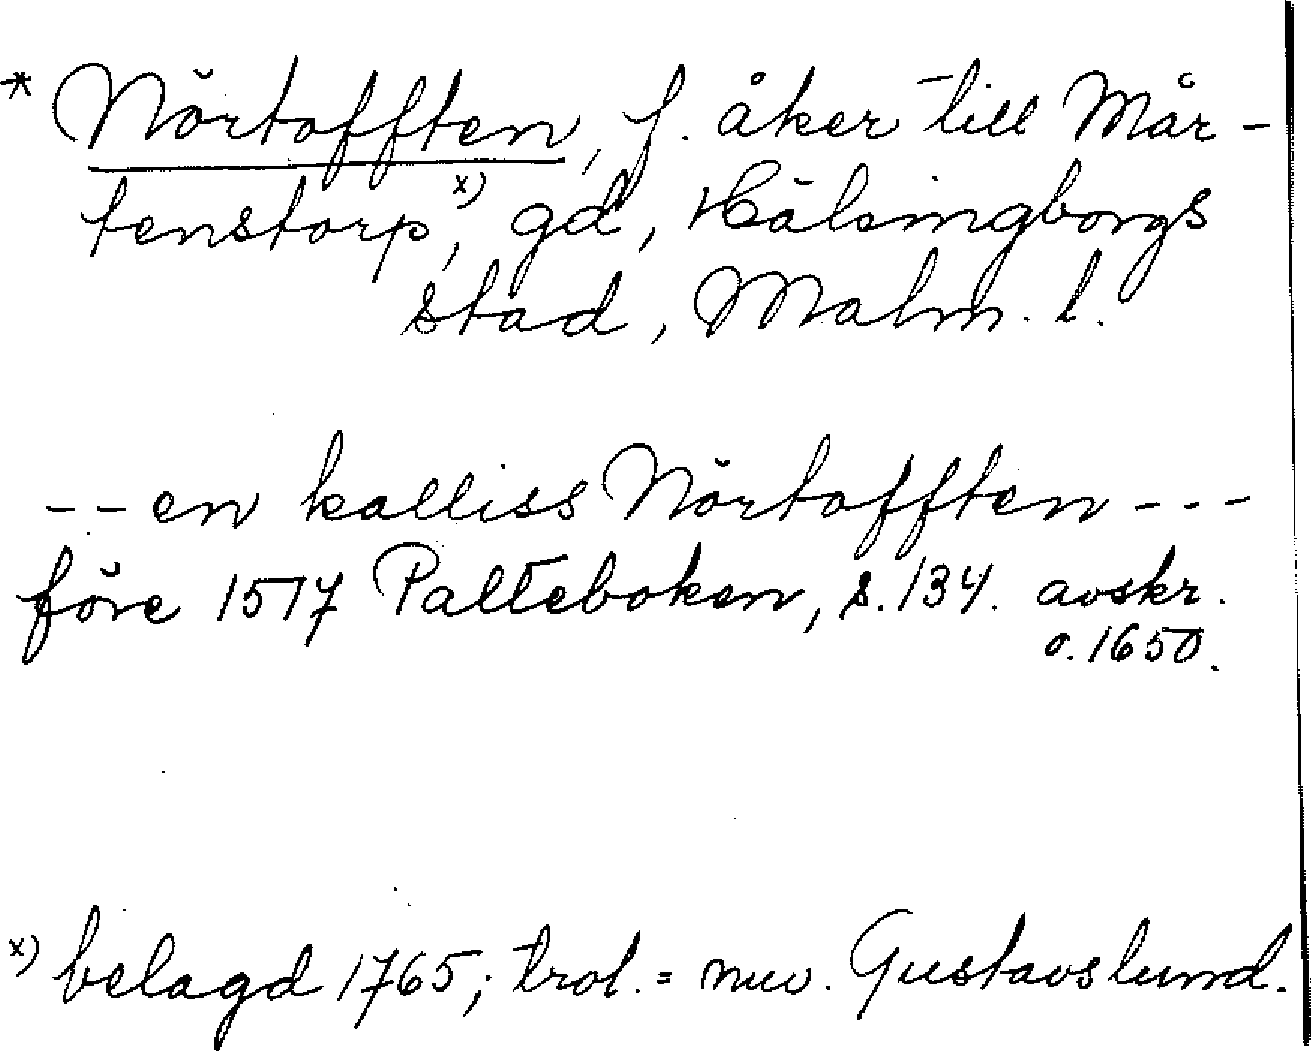 * Nörtofften, f. åker till Mår-
tenstorp,x) gd, Hälsingborgs
stad, Malm. l.
-- en kalliss Nörtofften ---
före 1517 Palteboken, s. 134. avskr.
o. 1650.
x) belagd 1765; trol. = nuv. Gustavslund.